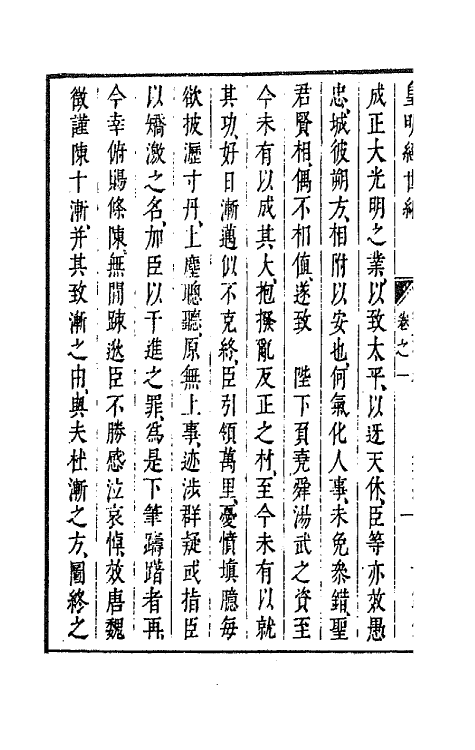 皇明經世編 卷之一
成正大光明之業、以致太平、以迓天休、臣等亦效愚
忠、城彼朔方、相附以安也、何氣化人事、未免參錯、聖
君賢相、偶不相值、遂致 陛下負堯舜湯武之資、至
今未有以成其大、抱撥亂反正之材、至今未有以就
其功、好日漸邁、似不克終、臣引領萬里、憂憤填臆、每
欲披瀝寸丹、上塵聰聽、原無上事、迹涉群疑、或指臣
以矯激之名、加臣以干進之罪、爲是下筆躊躇者再、
今幸俯賜條陳、無間踈逖、臣不勝感泣哀悼、效唐魏
徵謹陳十漸、并其致漸之由、與夫杜漸之方、圖終之